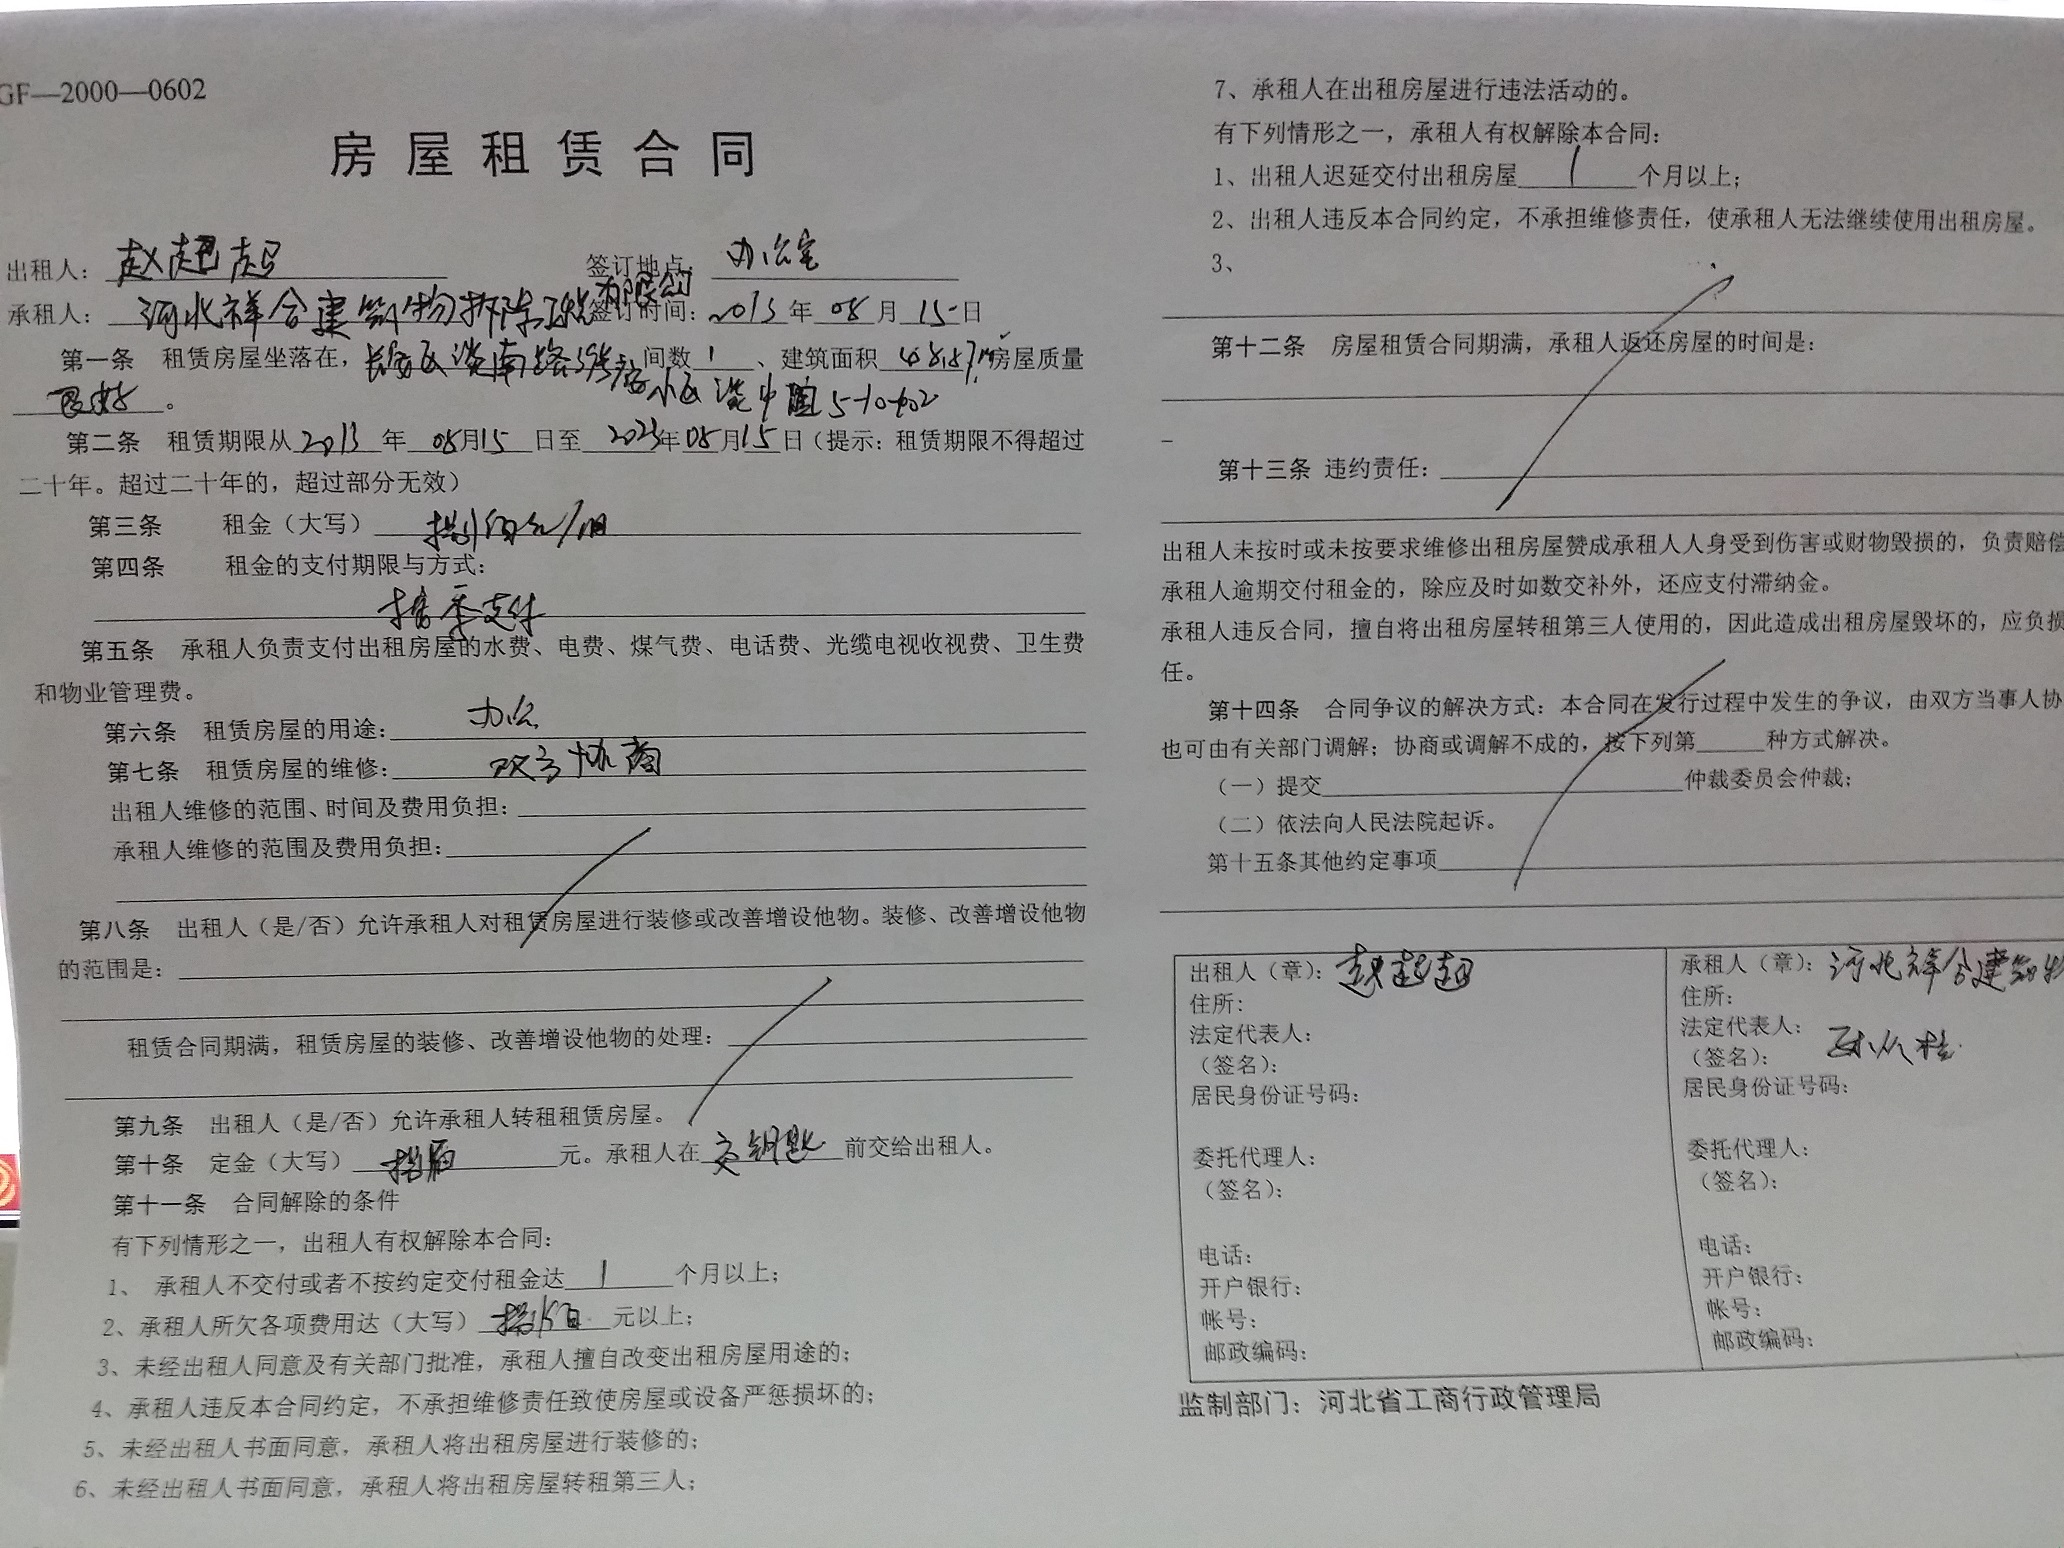 GF—2000—0602
房屋租赁合同
出租人：赵起起 签订地点：办公室
承租人：河北祥合建筑物拆除工程有限公司 签订时间：2013年08月15日
第一条 租赁房屋坐落在，长安区谈南路 间数1、建筑面积 房屋质量
小区谈中园5-10-402
良好。
第二条 租赁期限从2013年08月15日至2023年08月15日（提示：租赁期限不得超过
二十年。超过二十年的，超过部分无效）
第三条 租金（大写）
第四条 租金的支付期限与方式：
按季支付
第五条 承租人负责支付出租房屋的水费、电费、煤气费、电话费、光缆电视收视费、卫生费
和物业管理费。
第六条 租赁房屋的用途：办公
第七条 租赁房屋的维修：双方协商
出租人维修的范围、时间及费用负担：
承租人维修的范围及费用负担：
第八条 出租人（是/否）允许承租人对租赁房屋进行装修或改善增设他物。装修、改善增设他物
的范围是：
租赁合同期满，租赁房屋的装修、改善增设他物的处理：
第九条 出租人（是/否）允许承租人转租租赁房屋。
第十条 定金（大写） 元。承租人在交钥匙前交给出租人。
第十一条 合同解除的条件
有下列情形之一，出租人有权解除本合同：
1、承租人不交付或者不按约定交付租金达1个月以上；
2、承租人所欠各项费用达（大写） 元以上；
3、未经出租人同意及有关部门批准，承租人擅自改变出租房屋用途的；
4、承租人违反本合同约定，不承担维修责任致使房屋或设备严惩损坏的；
5、未经出租人书面同意，承租人将出租房屋进行装修的；
6、未经出租人书面同意，承租人将出租房屋转租第三人；
7、承租人在出租房屋进行违法活动的。
有下列情形之一，承租人有权解除本合同：
1、出租人迟延交付出租房屋1个月以上；
2、出租人违反本合同约定，不承担维修责任，使承租人无法继续使用出租房屋。
3、
第十二条 房屋租赁合同期满，承租人返还房屋的时间是：
第十三条 违约责任：
出租人未按时或未按要求维修出租房屋赞成承租人人身受到伤害或财物毁损的，负责赔偿
承租人逾期交付租金的，除应及时如数交补外，还应支付滞纳金。
承租人违反合同，擅自将出租房屋转租第三人使用的，因此造成出租房屋毁坏的，应负损
任。
第十四条 合同争议的解决方式：本合同在发行过程中发生的争议，由双方当事人协
也可由有关部门调解；协商或调解不成的，按下列第 种方式解决。
（一）提交 仲裁委员会仲裁；
（二）依法向人民法院起诉。
第十五条其他约定事项
出租人（章）：赵起起
住所：
法定代表人：
（签名）：
居民身份证号码：
委托代理人：
（签名）：
电话：
开户银行：
帐号：
邮政编码：
承租人（章）：河北祥合建筑物
住所：
法定代表人：
（签名）：
居民身份证号码：
委托代理人：
（签名）：
电话：
开户银行：
帐号：
邮政编码：
监制部门：河北省工商行政管理局